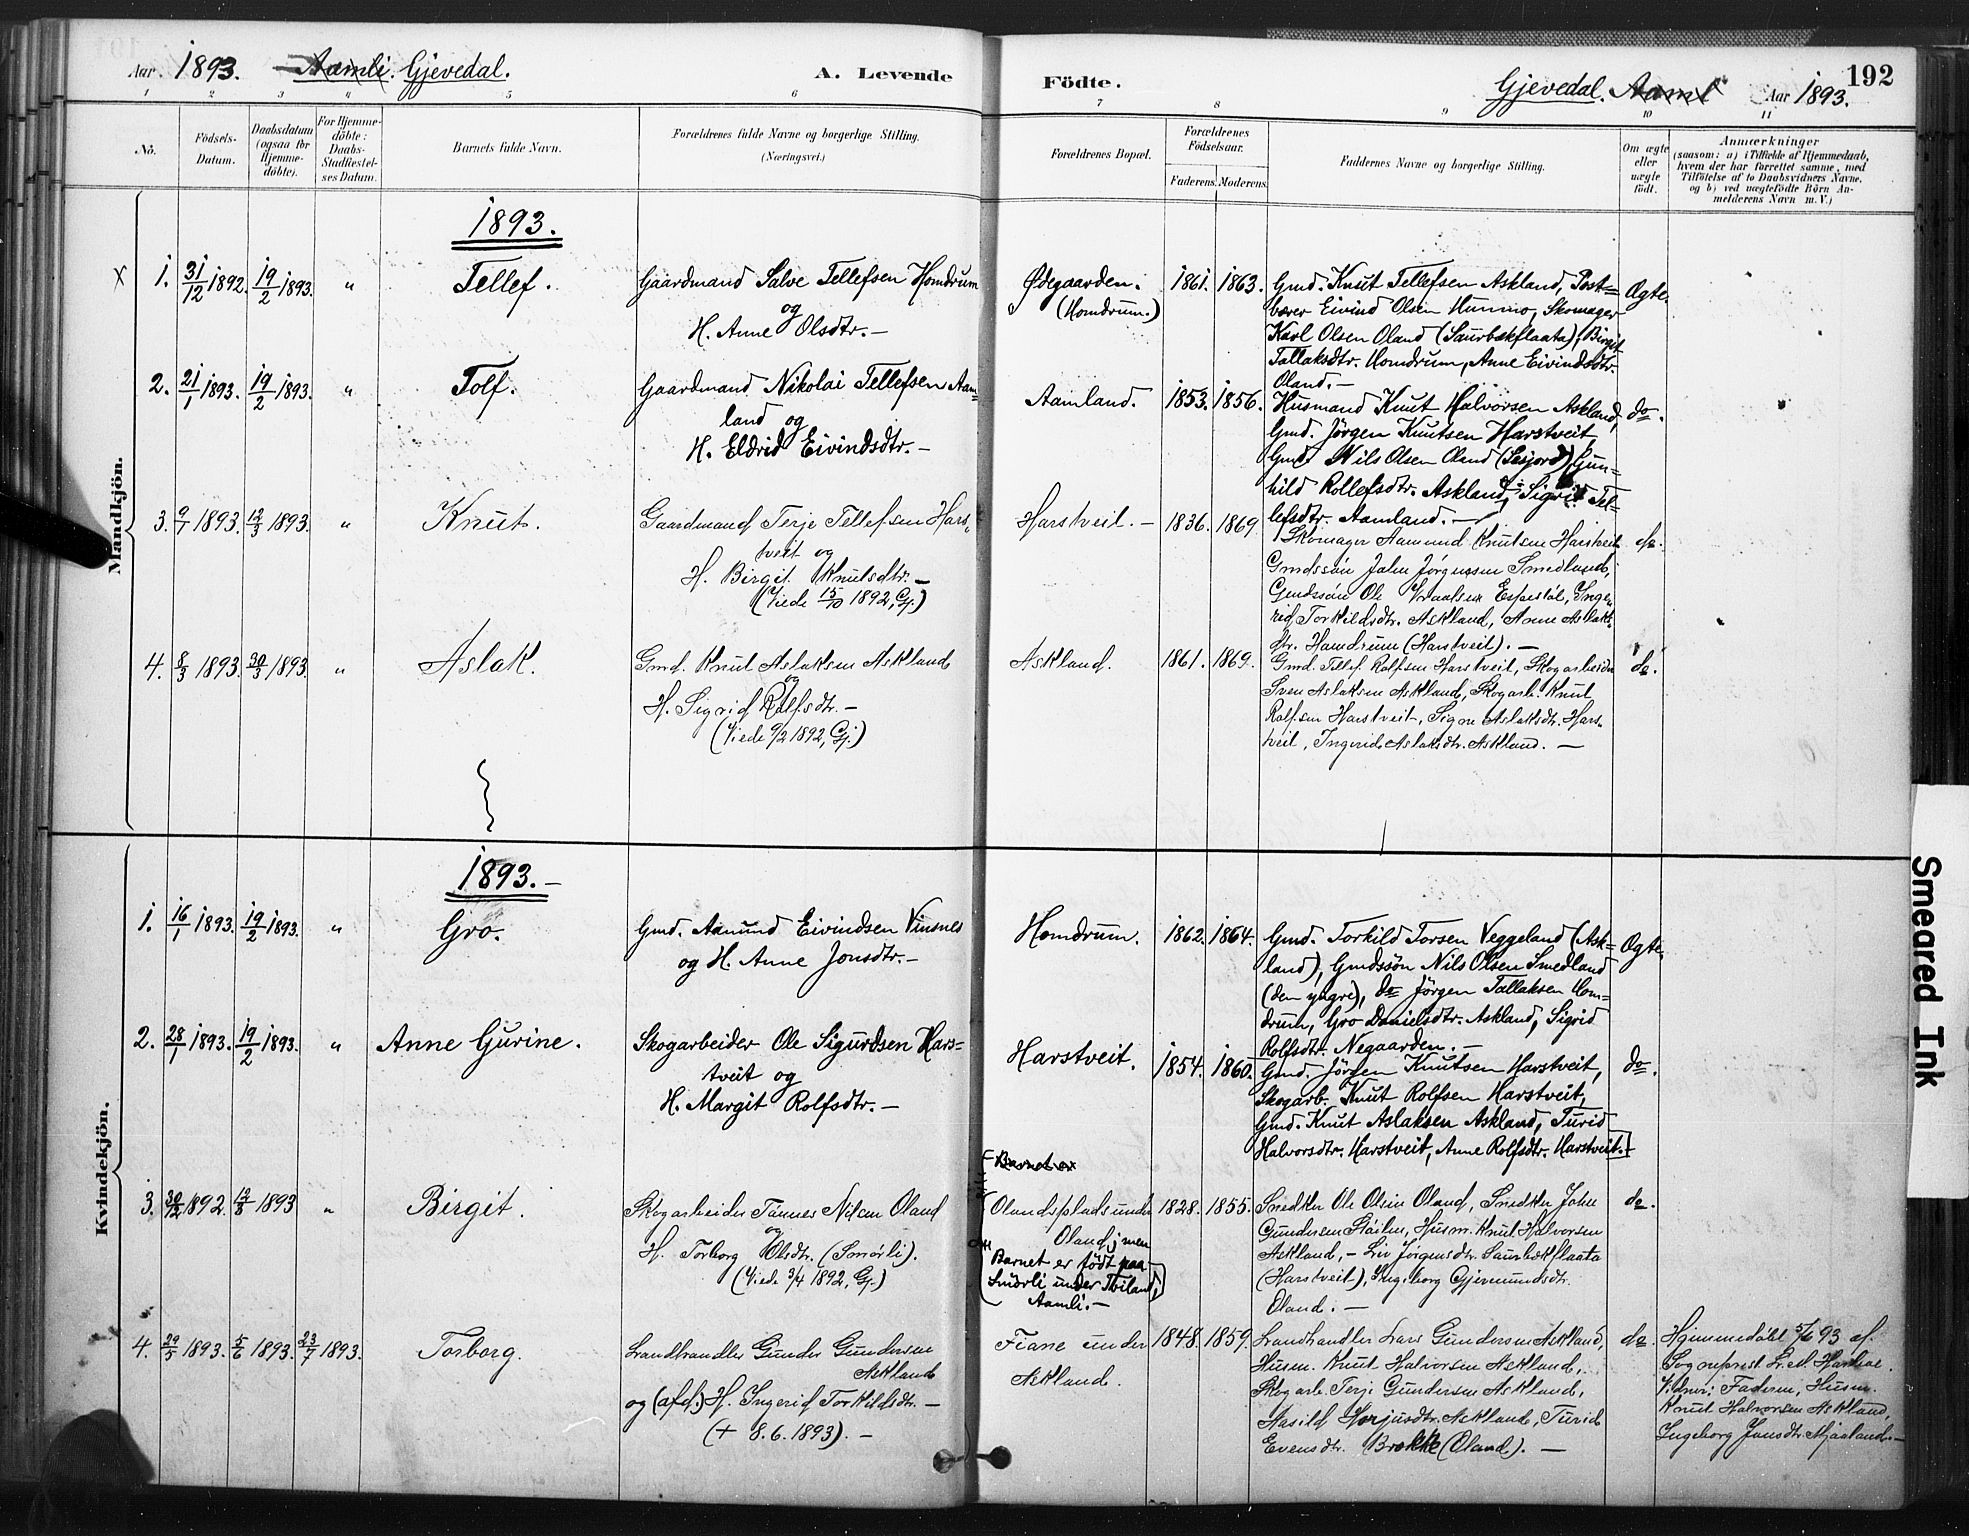 Aar 1893. Aamli. Gjevedal. A. Levende
Födte. Gjevedal. Aaml Aar 1893. 192
1 2 3 4 5 6 7 8 9 10 11
No. Födsels-Datum. Daabsdatum (ogsaa for Hjemmedöbte). For Hjemmedöbte: Daabs-Stadfæstelses Datum. Barnets fulde Navn. Forældrenes fulde Navne og borgerlige Stilling. (Næringsvei.)
Forældrenes Bopæl. Forældrenes Födselsaar. Faderens. Moderens. Faddernes Navne og borgerlige Stilling. Om ægte eller uægte födt.
Anmærkninger
(saasom: a) i Tilfælde af Hjemmedaab,
hvem der har forrettet samme, med
Tilföielse af to Daabsvidners Navne.
og b) ved uægtefödte Börn An-
melderens Navn m. V.)
Mandkjön.
1893.
x 1. 31/12 1892. 19/2 1893. " Tellef. Gaardmand Salve Tellefsen Homdrum
og
H. Anne Olsdtr. —
Ødegaarden. (Homdrum.) 1861. 1863.
Gmd. Knut Tellefsen Askland, Post=
bærer Eivind Olsen Hunmo, Skomager
Karl Olsen Oland (Saurbækflaata), Birgit
Tallaksdtr. Homdrum, Anne Eivindsdtr.
Oland. —
Ægte.
2. 21/1 1893. 19/2 1893. " Tolf. Gaardmand Nikolai Tellefsen Aam=
land og
H. Eldrid Eivindsdtr. —
Aamland. 1853. 1856.
Husmand Knut Halvorsen Askland,
Gmd. Jörgen Knutsen Harstveit,
Gmd. Nils Olsen Oland (Sesjord), Gun=
hild Rollefsdtr. Askland, Sigrid Tel=
lefsdtr. Aamland. —
do.
3. 9/1 1893. 12/3 1893. " Knut. Gaardmand Terje Tellefsen Hars=
tveit og
H. Birgit Knutsdtr. —
(Viede 15/10 1892, Gj.)
Harstveit. — 1836. 1869
Skomager Aamund Knutsen Harstveit
Gmdssön John Jörgensen Smedland,
Gmdssön Ole Vraalsen Espestöl, Inge=
rid Torkildsdtr. Askland, Anne Aslaks=
dtr. Homdrum (Harstveit). —
do.
4. 8/3 1893. 30/3 1893. " Aslak. Gmd. Knut Aslaksen Askland
og
H. Sigrid Rolfsdtr. —
(Viede 9/2 1892, Gj.)
Askland. 1861. 1869.
Gmd. Tellef Rolfsen Harstveit, Skogarbeider
Sven Aslaksen Askland, Skogarb. Knut
Rolfsen Harstveit, Signe Aslaksdtr. Hars=
tveit, Ingerid Aslaksdtr. Askland. —
do.
Kvindekjön.
1893. —
1. 16/1 1893. 19/2 1893. " Gro. Gmd. Aanund Eivindsen Vinsnes
og H. Anne Jonsdtr. —
Homdrum. 1862. 1864.
Gmd. Torkild Torsen Veggeland (Ask=
land), Gmdssön Nils Olsen Smedland
(den yngre), do Jörgen Tallaksen Hom=
drum, Gro Danielsdtr. Askland, Sigrid
Rolfsdtr. Negaarden. —
Ægte.
2. 28/1 1893. 19/2 1893. " Anne Gurine. Skogarbeider Ole Sigurdsen Hars=
tveit og
H. Margit Rolfsdtr. —
Harstveit. 1854. 1860.
Gmd. Jörgen Knutsen Harstveit,
Skogarb. Knut Rolfsen Harstveit,
Gmd. Knut Aslaksen Askland, Turid
Halvorsdtr. Harstveit, Anne Rolfsdtr. Harstveit. —
do.
Barnet er
3. 30/12 1892. 13/8 1893 " Birgit. Skogarbeider Tönnes Nilsen Oland
og
H. Torborg Olsdtr. (Smörli).
(Viede 3/4 1892, Gj.)
Olandsplads under
Oland; men
Barnet er födt paa
Smörli under Tviland,
Aamli. —
1828. 1855.
Smedkr Ole Olsen Oland, Smedkr John
Gundersen Stöilen, Husm. Knut Halvorsen
Askland, — Liv Jörgensdtr. Saurbækflaata
(Harstveit), Ingeborg Gjermundsdtr.
Oland. —
do.
4. 29/5 1893. 5/6 1893. 23/7 1893. Torborg. Landhandler Gunder Gundersen
Askland
og (afd.) H. Ingerid Torkildsdtr. —
(+ 8.6.1893). —
Fiane under
Askland.
1848. 1859.
Landhandler Lars Gundersen Askland,
Husm. Knut Halvorsen Askland,
Skogarb. Terje Gundersen Askland,
Aasild Herjusdtr. Askland, Turid
Evensdtr. Brokke (Oland). —
do.
Hjemmedöbt 5/6 93 af
Sogneprest
Vidner: Faderen, Husm.
Knut Halvorsen Askland,
Ingeborg Jonsdtr. Mjaaland. —
Smeared Ink